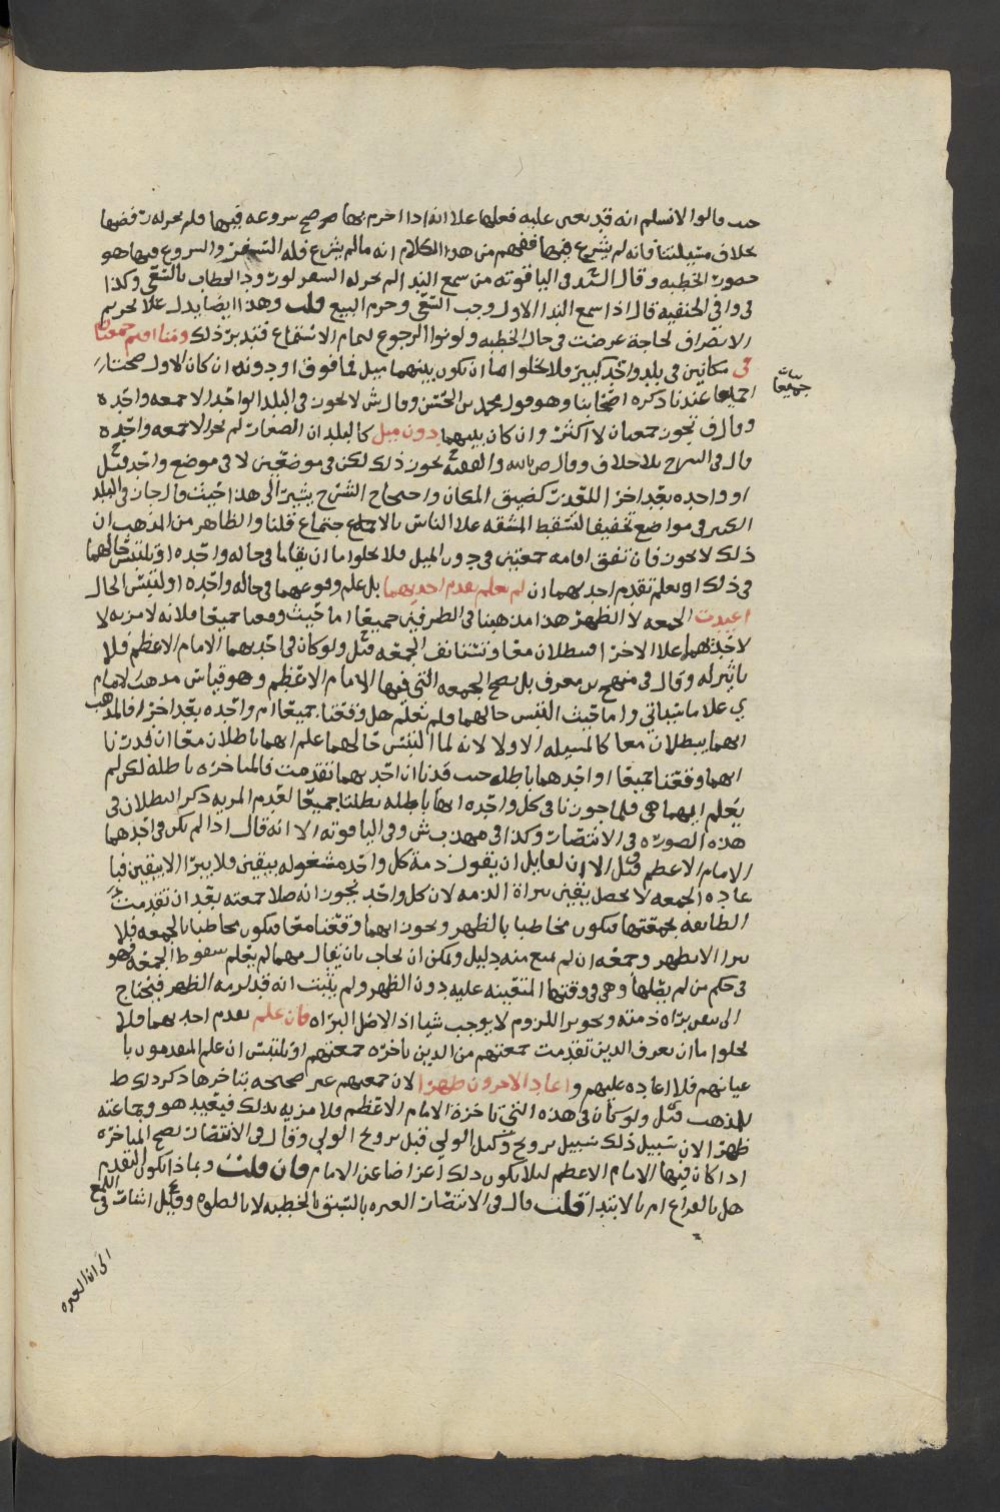 حيث قالوا لانسلم انه قد تعين عليه فعلها علا انه اذا احرم بها صح شروعه فيها فلم يجز له رفضها
بخلاف مسئلتنا فانه لم يشرع فيها ففهم من هذا الكلام انه مالم يشرع فله السفر والشروع فيها هو
حضور الخطبه وقال السيد في الياقوته من سمع الندا لم يجز له السفر لورود الخطاب بالسعي وكذا
في وافي الحنفيه قال اذا سمع الندا الاول وجب السعي وحرم البيع قلت وهذا ايضا يدل علا تحريم
الانصراف لحاجة عرضت في حال الخطبه ولو نوا الرجوع لتمام الاستماع فتدبر ذلك ومتا اقيم جمعتان
في مكانين في بلد واحد كبير فلا يخلوا اما ان تكون بينهما ميل فما فوق او دونه ان كان الاول صحتا
جميعا
جميعا عندنا ذكره اصحابنا وهو قول محمد بن الحسن وقال ش لا يجوز في البلد الواحد الا جمعه واحده
وقال ف تجوز جمعتان لا اكثر وان كان بينهما دون ميل كالبلدان الصغار لم تجز الا جمعه واحده
قال في الشرح بلا خلاف وقال ص بالله والفقيه ح يجوز ذلك لكن في موضعين لا في موضع واحد قيل ح
او واحده بعد اخرا للعذر كضيق المكان واحتجاج الشرح يشير الى هذا حيث قال جاز في البلد
الكبير في مواضع تخفيفا لتسقط المشقه علا الناس بالاجتماع قلنا والظاهر من المذهب ان
ذلك لا يجوز فان تفق اقامه جمعتين في دون الميل فلا يخلوا اما ان يقاما في حاله واحده او يلتبس حالهما
في ذلك او يعلم تقدم احديهما ان لم يعلم تقدم احديهما بل علم وقوعهما في حاله واحده او لتبس الحال
اعيدت الجمعه لا الظهر هذا مذهبنا في الطرفين جميعا اما حيث وقعا جميعا فلانه لا مزيه لا
لاحدهما علا الاخرا فيبطلان معا وتستانف الجمعه قيل ولو كان في احديهما الامام الاعظم فلا
تاثير له وقال في منهج بن معرف بل تصح الجمعه التي فيها الامام الاعظم وهو قياس مذهب الامام
ي علا ما سياتي واما حيث التبس حالهما فلم نعلم هل وقعتا جميعا ام واحده بعد اخرا فالمذهب
انهما يبطلان معا كالمسيله الاولا لانه لما التبس حالهما علم انهما باطلان معا ان قدرنا
انهما وقعتا جميعا او احدهما باطله حيث قدرنا ان احديهما تقدمت فالمتاخره باطله لكن لم
يعلم ايهما هي فلما جوزنا في كل واحده انها باطله بطلتا جميعا لعدم المزيه ذكر البطلان في
هذه الصوره في الانتصار وكذا في مهذب ش وفي الياقوته الا انه قال اذا لم تكن في احدهما
الامام الاعظم قيل الا ان لقايل ان يقول ذمة كل واحد مشغوله بيقين فلا يبرا الا بيقين فبا
عاده الجمعه لا يحصل يقين براة الذمه لان كل واحد يجوز انه صلا جمعته بعد ان تقدمت
الطائفه بجمعتها فيكون مخاطبا بالظهر ويجوز انهما وقعتا معا فيكون مخاطبا بالجمعه فلا
يبرا الا بظهر وجمعه ان لم يمنع منه دليل ويمكن ان يجاب بان يقال مهما لم يعلم سقوط الجمعه فهو
في حكم من لم يصلها وهي في وقتها المتعينه عليه دون الظهر ولم يثبت انه قد لزمه الظهر فيحتاج
الى يقين براه ذمته وتجويز اللزوم لا يوجب شيا اذ الاصل البراه فان علم تقدم احديهما فلا
يخلوا ما ان نعرف الذين تقدمت جمعتهم من الذين تاخره جمعتهم او يلتبس ان علم المقدمون با
عيانهم فلا اعاده عليهم واعاد الاخرون ظهرا لان جمعتهم غير صحيحه بتاخرها ذكر ذلك ط
للمذهب قيل ولو كان في هذه التي تاخرة الامام الاعظم فلا مزيه بذلك فيعيد هو وجماعته
ظهرا لان سبيل ذلك سبيل تزويج وكيل الولي قبل تزويج الولي وقال في الانتصار تصح المتاخره
اذا كان فيها الامام الاعظم ليلا يكون ذلك اعراضا عن الامام فان قلت وبماذا يكون التقدم
هل بالفراغ ام بالابتدا قلت قال في الانتصار العبره بالسبق بالخطبه لا بالصلوه وقيل اشار في اللمع
الى ان العبره